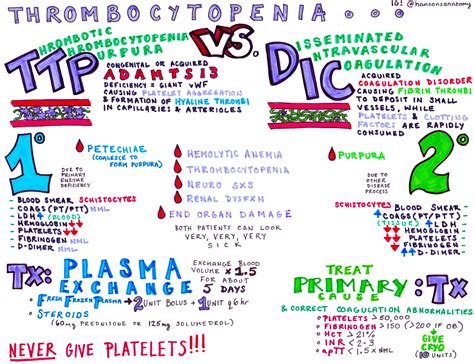 THROMBOCYTOPENIA...
IG: @hansonsanatomy
THROMBOTIC
THROMBOCYTOPENIA
PURPURA
TTP
VS.
DISSEMINATED
INTRAVASCULAR
COAGULATION
DIC
CONGENITAL OR ACQUIRED
ADAMTS13
DEFICIENCY = GIANT vWF
CAUSING PLATELET AGGREGATION
& FORMATION OF HYALINE THROMBI
IN CAPILLARIES & ARTERIOLES
ACQUIRED
COAGULATION DISORDER
CAUSING FIBRIN THROMBI
TO DEPOSIT IN SMALL
VESSELS, WHILE
PLATELETS & CLOTTING
FACTORS ARE RAPIDLY
CONSUMED
1°
DUE TO
PRIMARY
ENZYME
DEFICIENCY
PETECHIAE
(COALESCE TO
FORM PURPURA)
HEMOLYTIC ANEMIA
THROMBOCYTOPENIA
NEURO SXS
RENAL DYSFXN
END ORGAN DAMAGE
BOTH PATIENTS CAN LOOK
VERY, VERY, VERY
SICK
PURPURA
DUE TO
OTHER
DISEASE
PROCESS
2°
- BLOOD SMEAR SCHISTOCYTES
- COAGS (PT/PTT) NML
- LDH ↑ (BLOOD)
- HEMOGLOBIN ↓
- PLATELETS ↓
- FIBRINOGEN NML
- D-DIMER NML
SCHISTOCYTES BLOOD SMEAR -
↑ COAGS (PT/PTT) -
(TISSUE) ↑ LDH -
↓ HEMOGLOBIN -
↓ PLATELETS -
↓ FIBRINOGEN -
↑ D-DIMER -
Tx:
PLASMA
EXCHANGE
EXCHANGE BLOOD
VOLUME x 1.5
FOR ABOUT
5 DAYS
FRESH FROZEN PLASMA → 2 UNIT BOLUS + 1 UNIT q 6 hr
STEROIDS
(60mg PREDNISONE OR 125mg SOLUMEDROL)
NEVER GIVE PLATELETS!!!
Tx:
TREAT
PRIMARY
CAUSE
& CORRECT COAGULATION ABNORMALITIES
PLATELETS > 50,000
FIBRINOGEN > 150 (> 200 IF OB)
HCT > 21%
INR < 2-3
aPTT < 1.5 x NML
GIVE
CRYO
(10 UNITS)